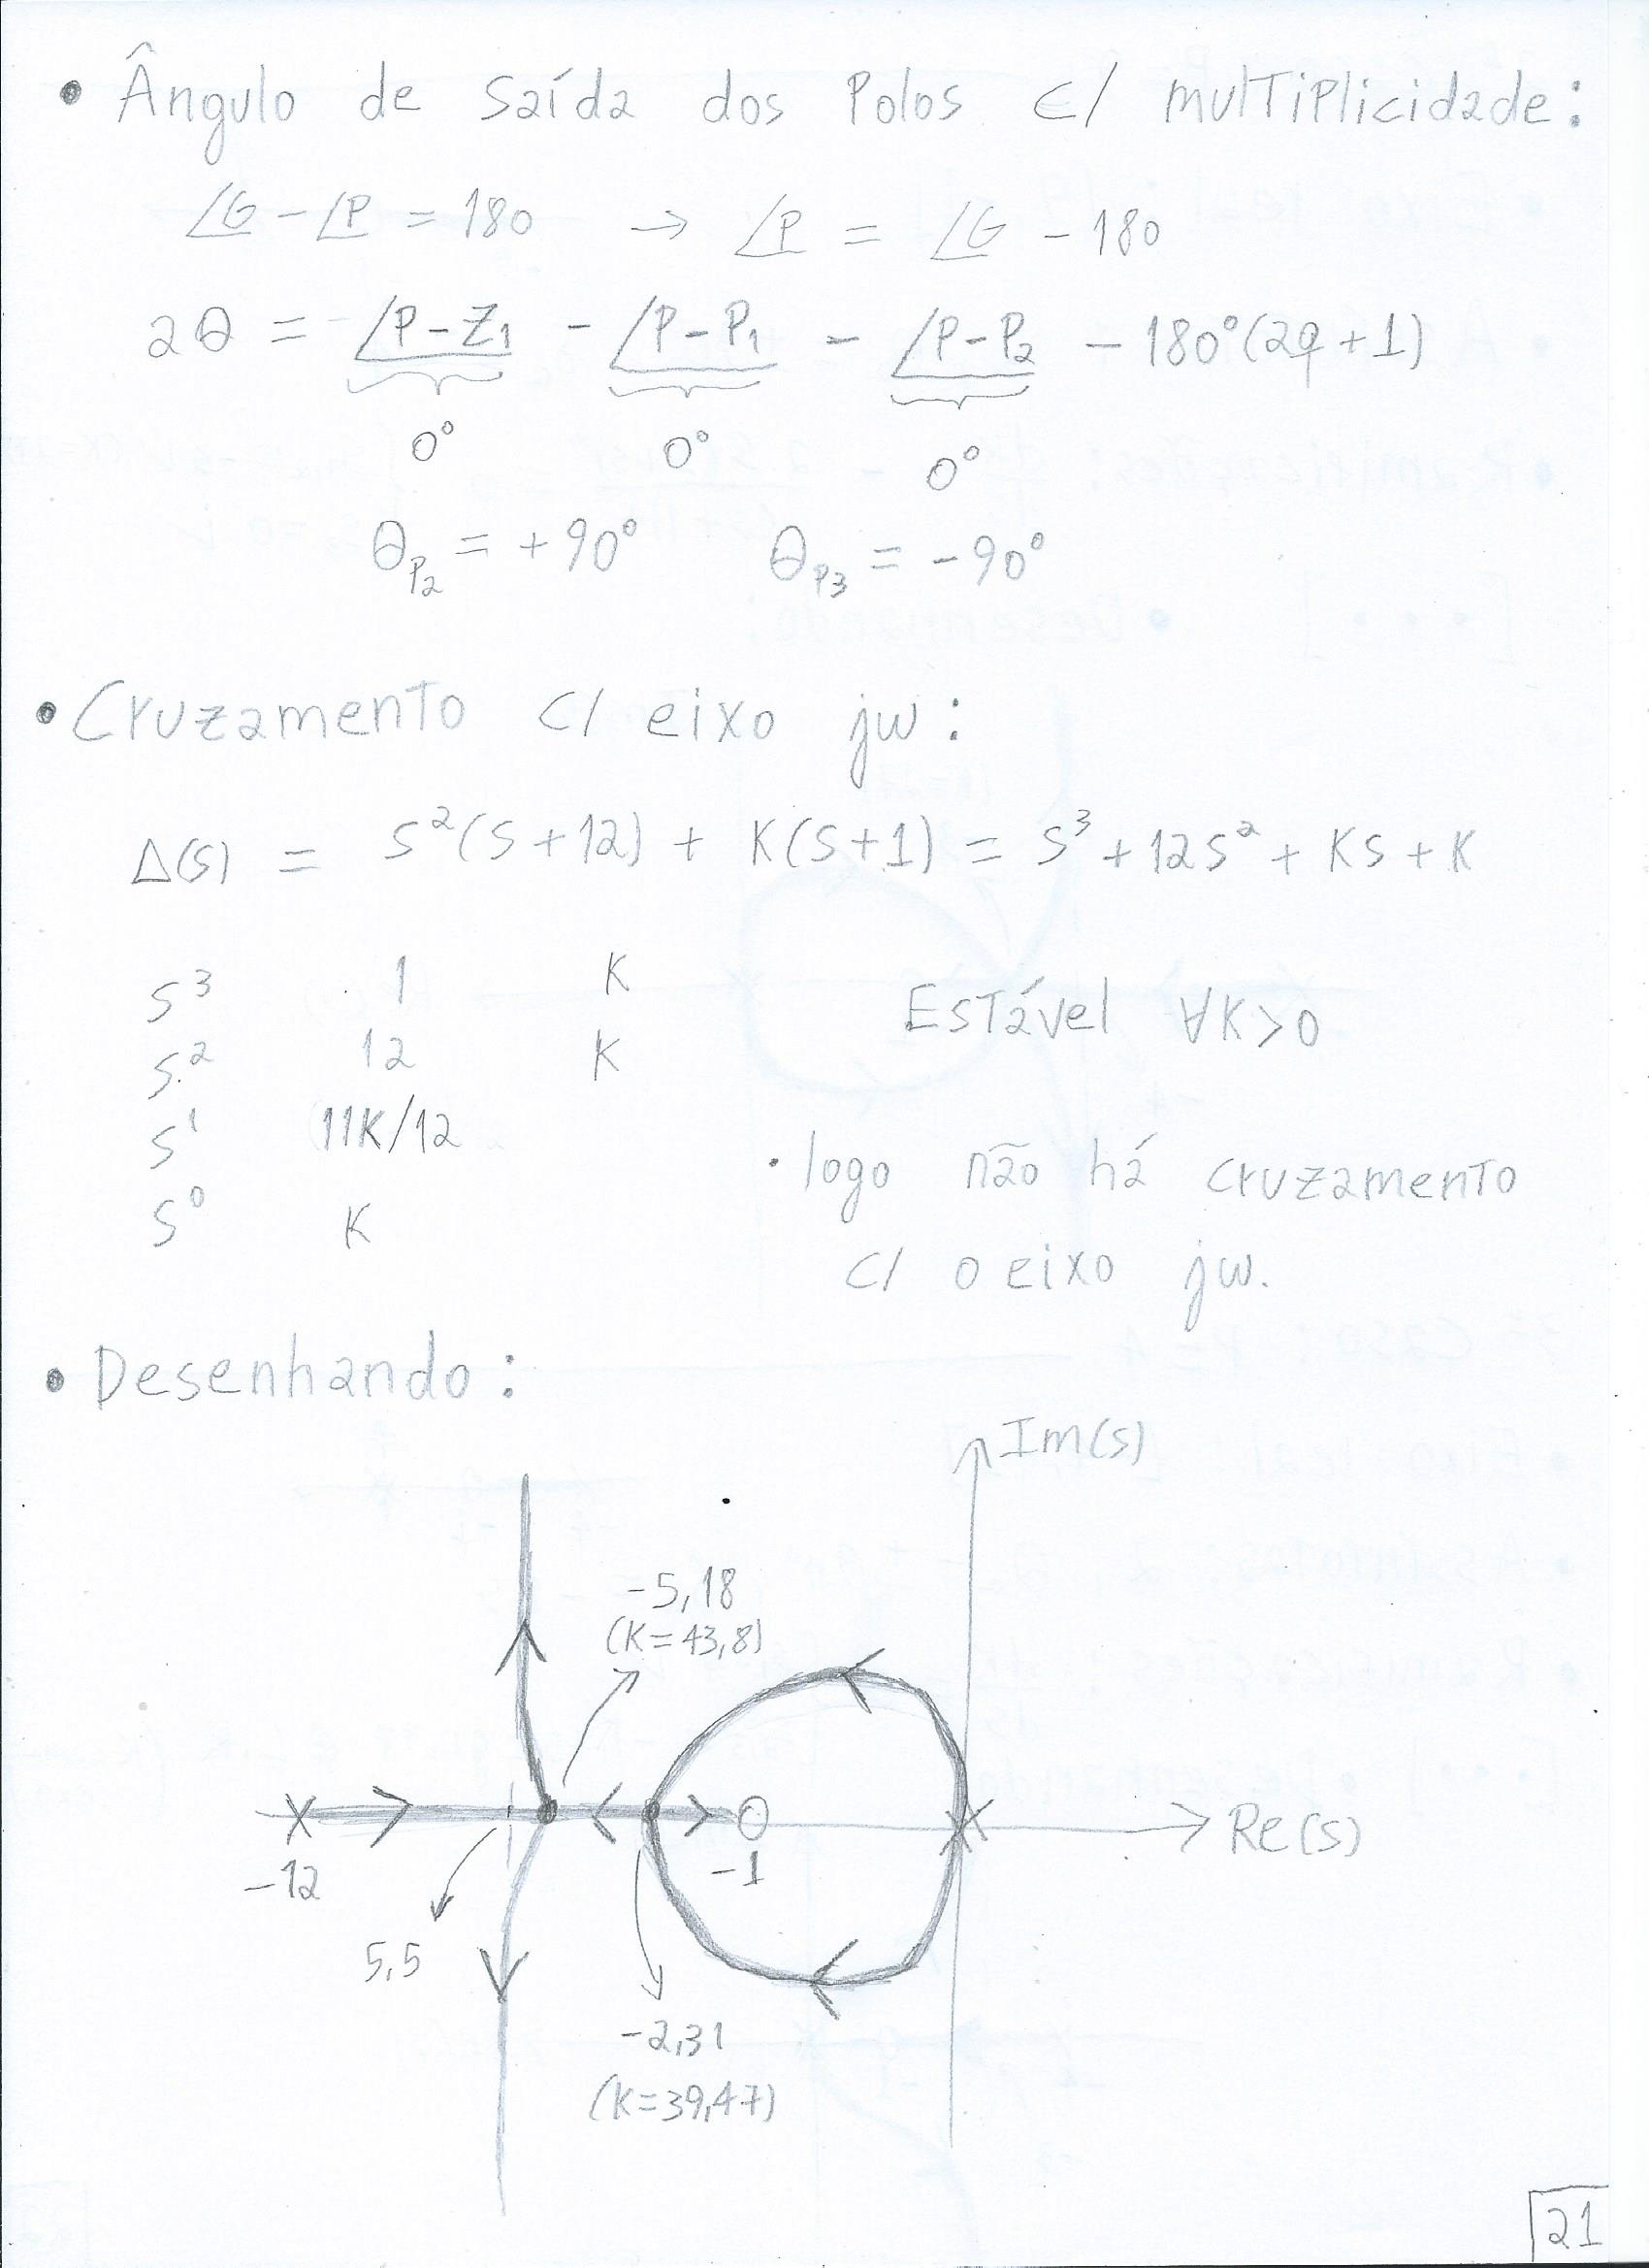 • Ângulo de saída dos Polos c/ multiplicidade:
∠G - ∠P = 180 → ∠P = ∠G - 180
2θ = ∠P-Z₁ - ∠P-P₁ - ∠P-P₂ - 180°(2q+1)
0° 0° 0°
θ_P₂ = +90° θ_P₃ = -90°
• Cruzamento c/ eixo jw:
Δ(s) = s²(s+12) + K(s+1) = s³ + 12s² + Ks + K
s³ 1 K
s² 12 K
s¹ 11K/12
s⁰ K
Estável ∀K>0
• logo não há cruzamento
c/ o eixo jw.
• Desenhando:
Im(s)
-5,18
(K=43,8)
Re(s)
-12
-1
5,5
-2,31
(K=39,47)
21